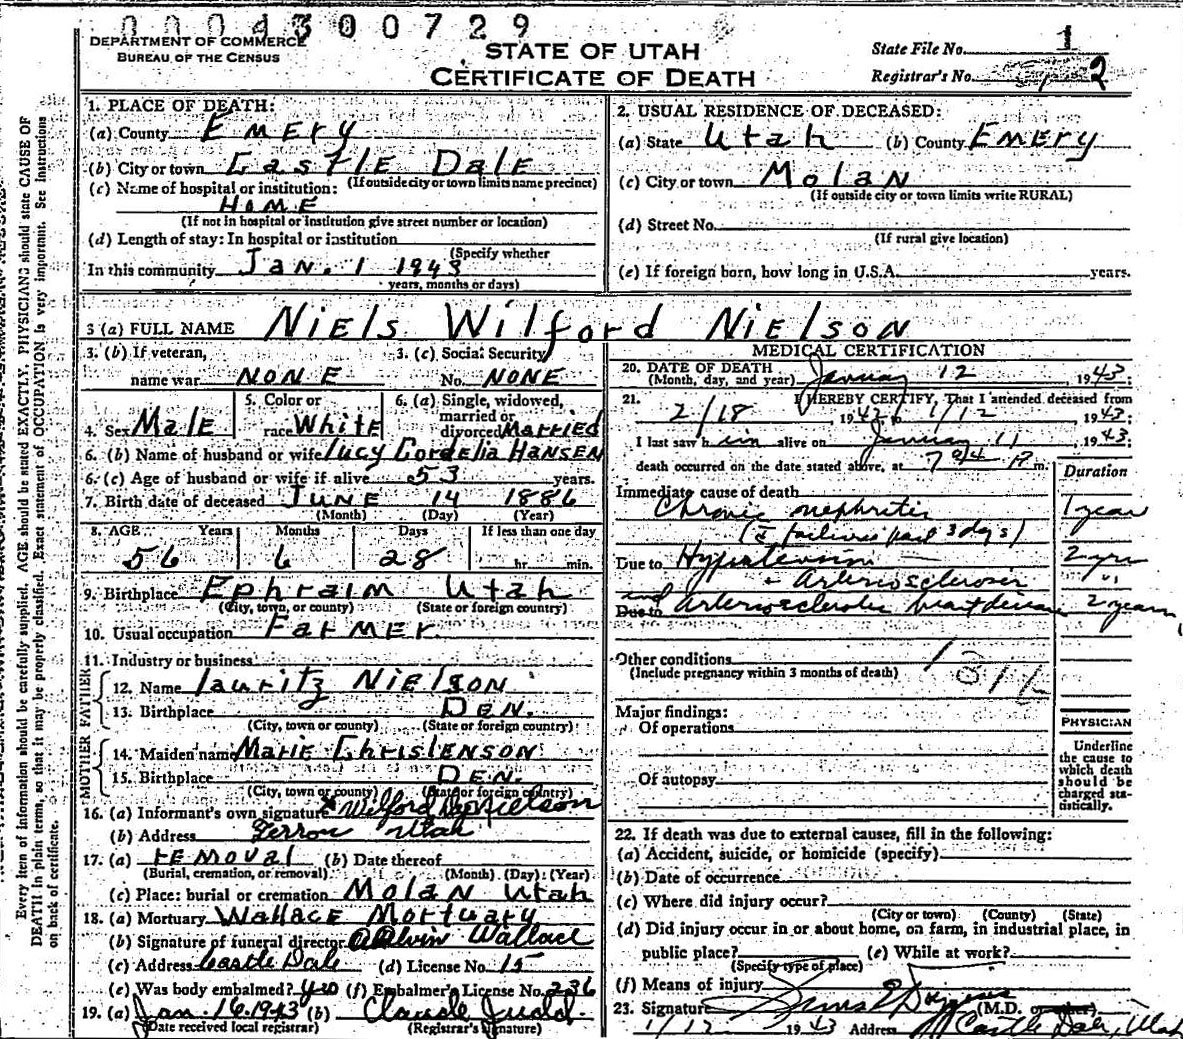 0004300729
DEPARTMENT OF COMMERCE
BUREAU OF THE CENSUS
STATE OF UTAH
CERTIFICATE OF DEATH
State File No. 1
Registrar's No. 2
Every item of information should be carefully supplied. AGE should be stated EXACTLY. PHYSICIANS should state CAUSE OF
DEATH in plain terms, so that it may be properly classified. Exact statement of OCCUPATION is very important. See instructions
on back of certificate.
1. PLACE OF DEATH:
(a) County EMERY
(b) City or town CASTLE DALE
(If outside city or town limits name precinct)
(c) Name of hospital or institution:
HOME
(If not in hospital or institution give street number or location)
(d) Length of stay: In hospital or institution
(Specify whether
In this community JAN. 1 1943
years, months or days)
2. USUAL RESIDENCE OF DECEASED:
(a) State Utah (b) County EMERY
(c) City or town MOLAN
(If outside city or town limits write RURAL)
(d) Street No.
(If rural give location)
(e) If foreign born, how long in U.S.A. years.
3 (a) FULL NAME NIELS WILFORD NIELSON
3. (b) If veteran,
name war NONE
3. (c) Social Security
No. NONE
4. Sex MALE
5. Color or
race WHITE
6. (a) Single, widowed,
married or
divorced MARRIED
6. (b) Name of husband or wife LUCY CORDELIA HANSEN
6. (c) Age of husband or wife if alive 53 years.
7. Birth date of deceased JUNE 14 1886
(Month) (Day) (Year)
8. AGE Years Months Days If less than one day
56 6 28 hr. min.
9. Birthplace EPHRAIM UTAH
(City, town, or county) (State or foreign country)
10. Usual occupation FARMER
11. Industry or business
FATHER
12. Name LAURITZ NIELSON
13. Birthplace DEN.
(City, town or county) (State or foreign country)
MOTHER
14. Maiden name MARIE CHRISTENSON
15. Birthplace DEN.
(City, town or county) (State or foreign country)
16. (a) Informant's own signature x Wilford Nielson
(b) Address Ferron Utah
17. (a) REMOVAL (b) Date thereof
(Burial, cremation, or removal) (Month) (Day) (Year)
(c) Place: burial or cremation MOLAN UTAH
18. (a) Mortuary WALLACE MORTUARY
(b) Signature of funeral director Alvin Wallace
(c) Address Castle Dale (d) License No. 15
(e) Was body embalmed? yes (f) Embalmer's License No. 236
19. (a) Jan. 16. 1943 (b) Claude Judd
(Date received local registrar) (Registrar's Signature)
MEDICAL CERTIFICATION
20. DATE OF DEATH
(Month, day, and year) January 12 1943:
21. I HEREBY CERTIFY, That I attended deceased from
2/18 1942, to 1/12 1943:
I last saw him alive on January 11 1943:
death occurred on the date stated above, at m.
Duration
Immediate cause of death
Chronic nephritis 1 year
Due to Hypertension 2 yrs
+ Arteriosclerosis "
and
Due to Arteriosclerotic heart disease 2 years
Other conditions
(Include pregnancy within 3 months of death)
Major findings:
Of operations
Of autopsy
PHYSICIAN
Underline
the cause to
which death
should be
charged sta-
tistically.
22. If death was due to external causes, fill in the following:
(a) Accident, suicide, or homicide (specify)
(b) Date of occurrence
(c) Where did injury occur?
(City or town) (County) (State)
(d) Did injury occur in or about home, on farm, in industrial place, in
public place? (e) While at work?
(Specify type of place)
(f) Means of injury
23. Signature (M.D. or other)
1/12 1943 Address Castle Dale, Utah